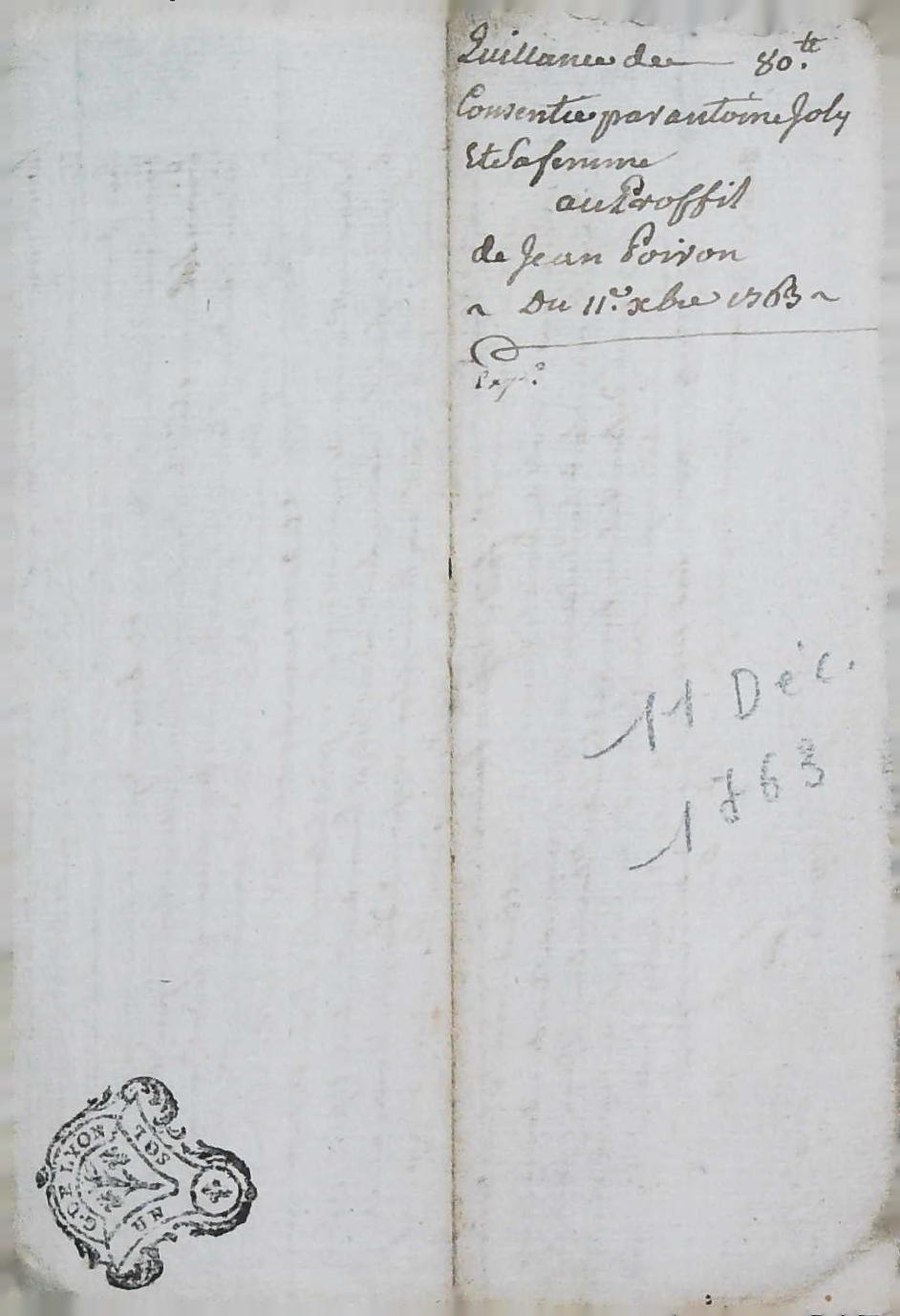 Quittance de 80.tt
Consentie par antoine Joly
Et Sa femme
au Proffit
de Jean Poiron
~ Du 11.e xbre 1763 ~
11 Déc.
1763
G. DE LYON
UN SOL